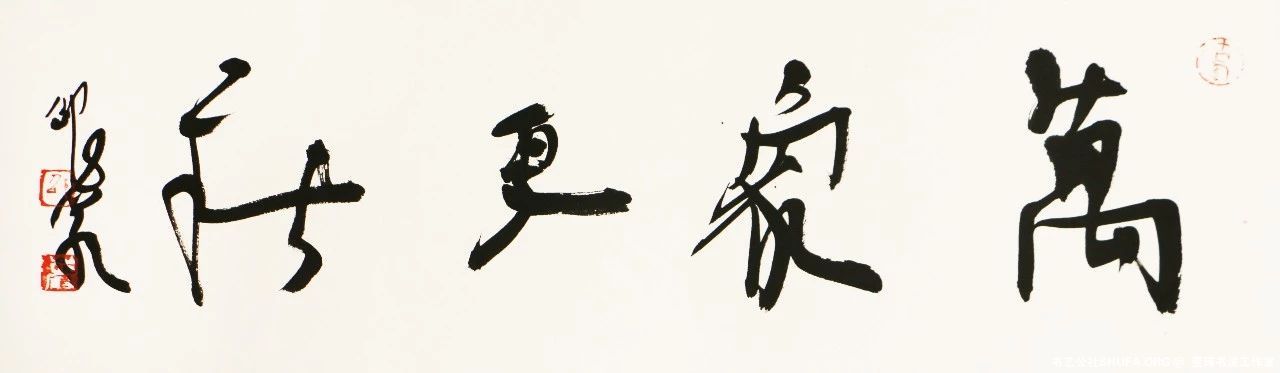 萬象更新
书艺公社SHUFA.ORG